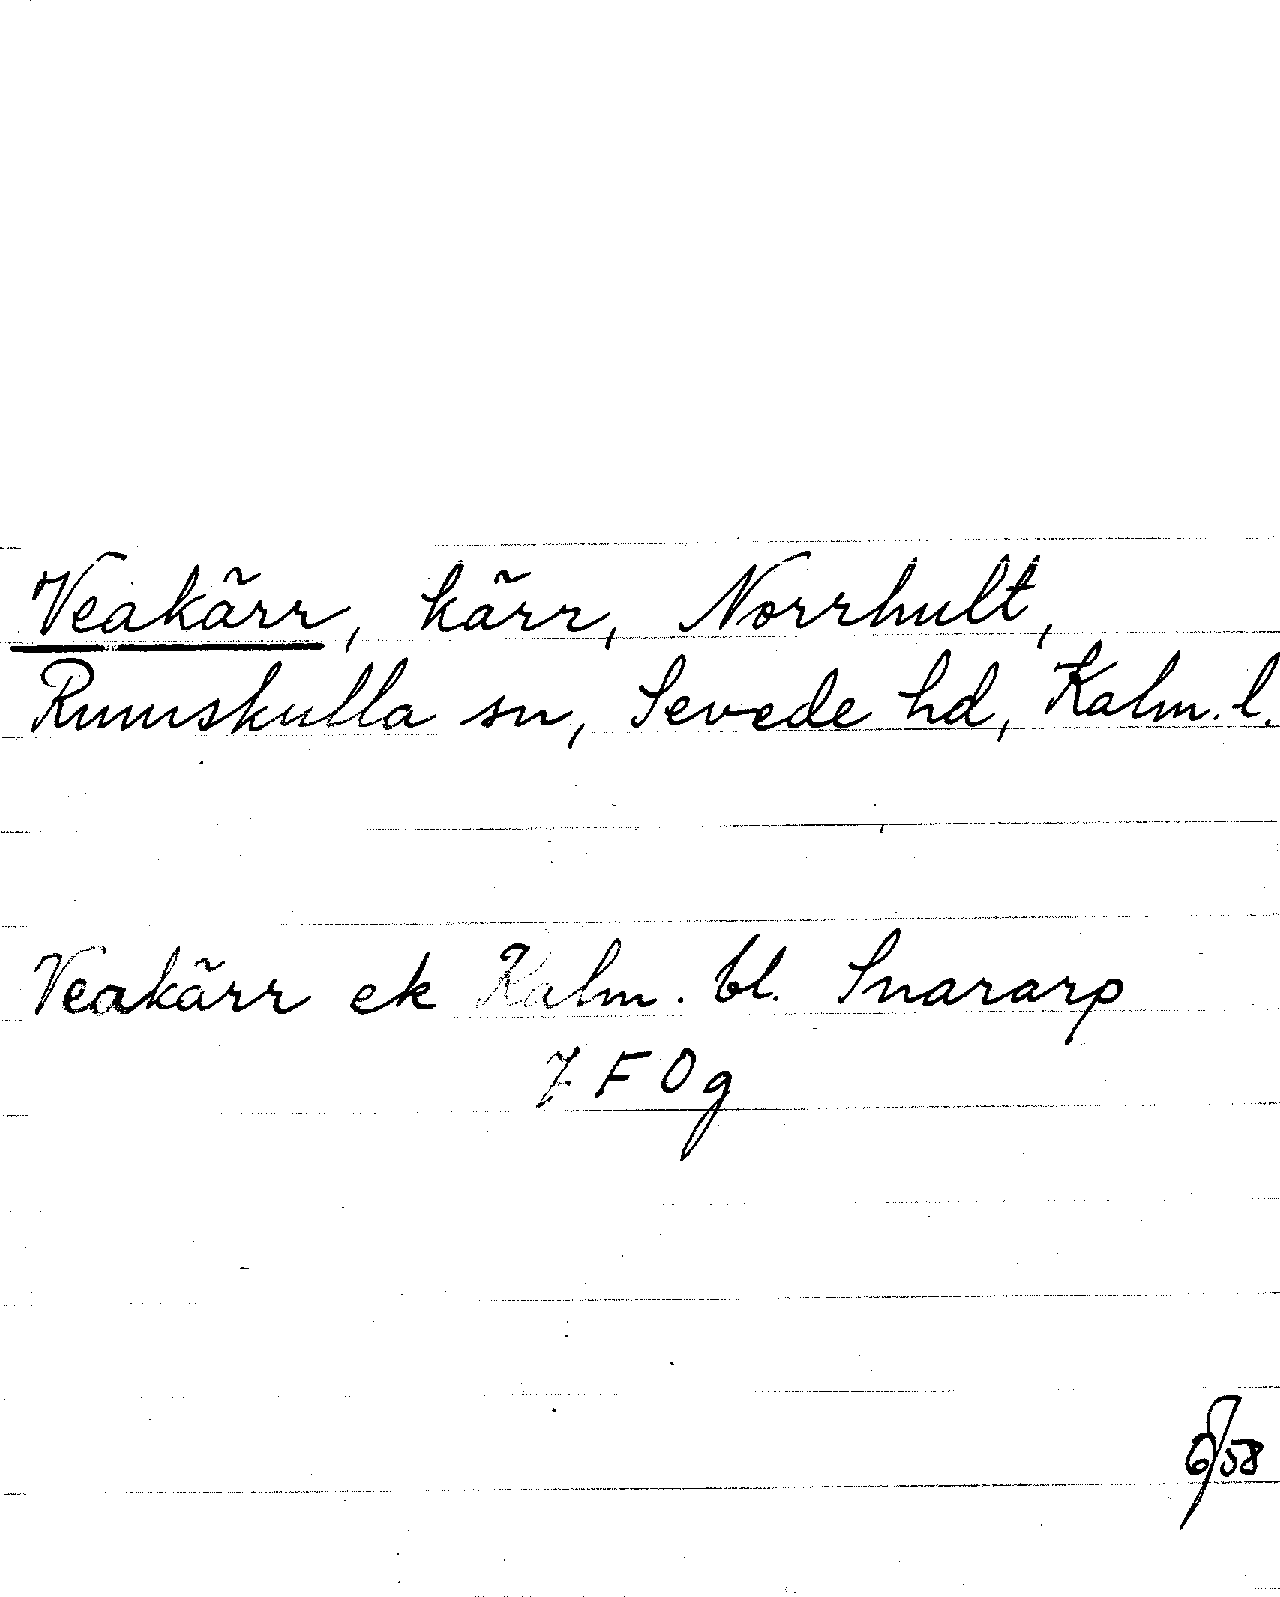 Veakärr, kärr, Norrhult,
Rumskulla sn, Sevede hd, Kalm. l.
Veakärr ek Kalm. bl. Snararp
7 F 0 g
6/58